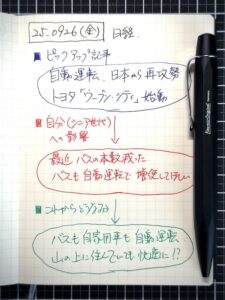 25.0926(金) 日経
■ ピックアップ記事
自動運転、日本から再攻勢
トヨタ「ウーブン・シティ」始動
■ 自分(シニア世代)
への影響
最近 バスの本数減った
バスも自動運転で増便してほしい
■ これからどうなる
バスも自家用車も自動運転
山の上に住んでいても快適に!?